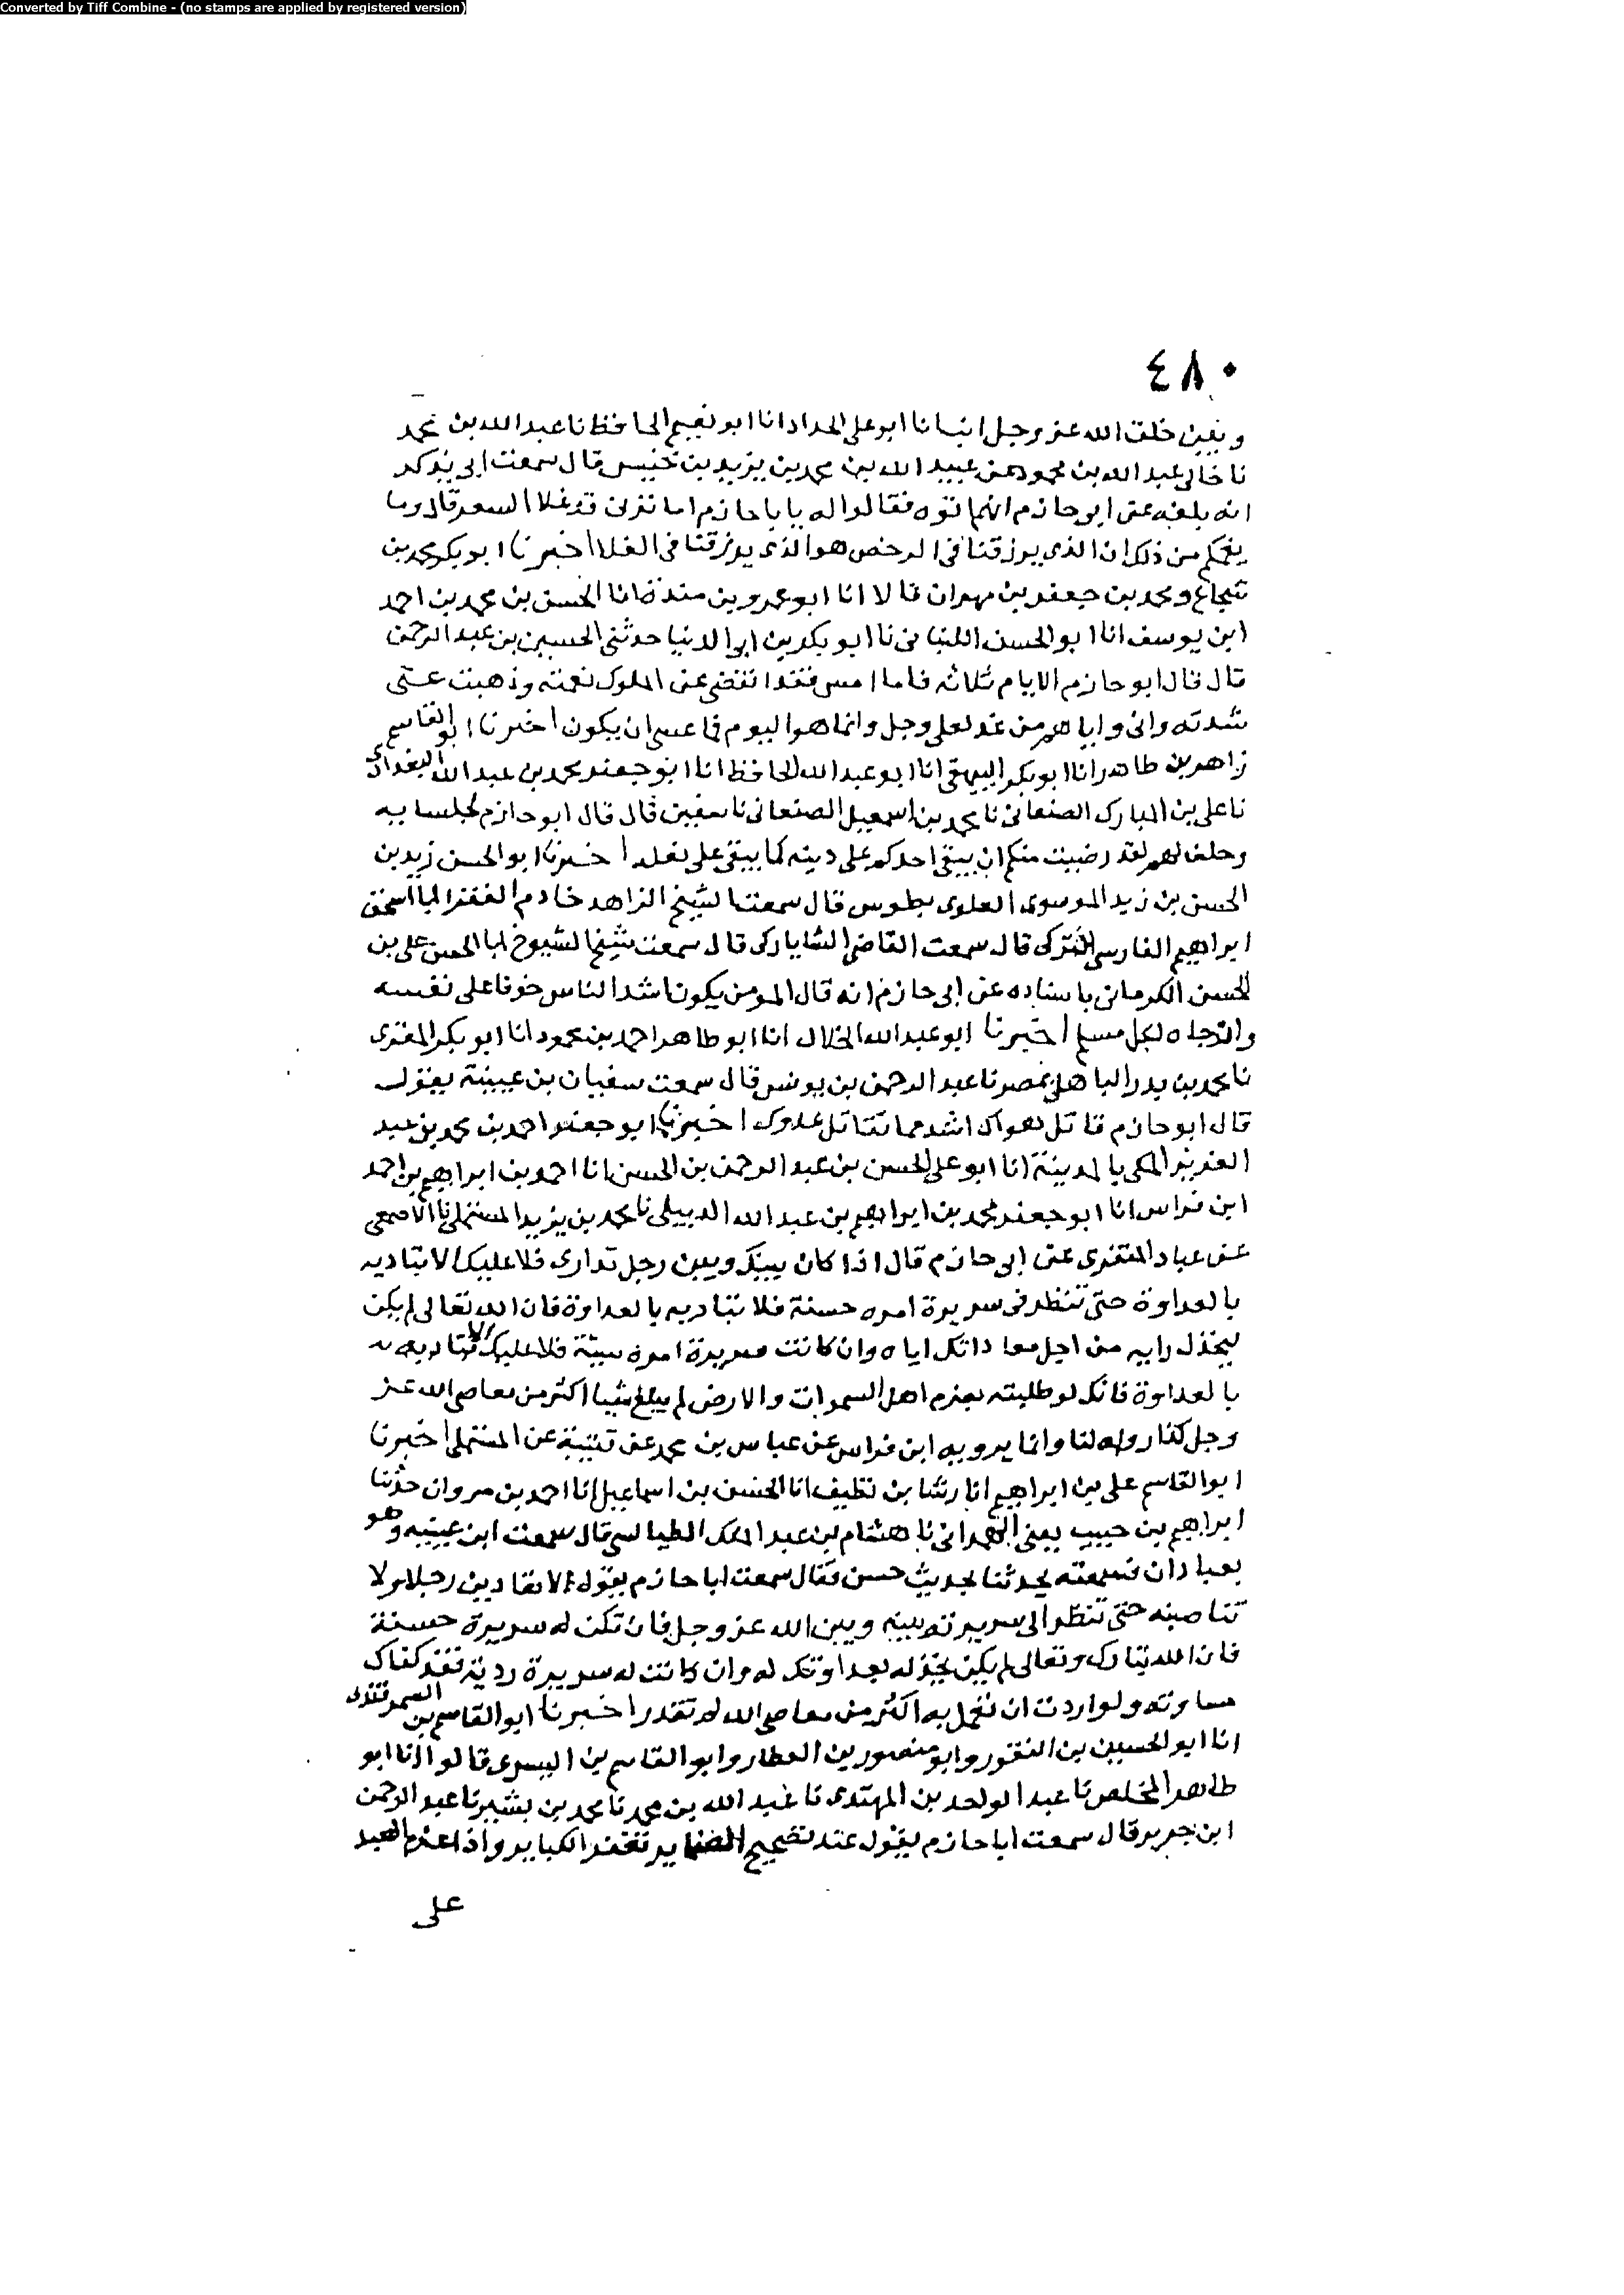 Converted by Tiff Combine - (no stamps are applied by registered version)
٤٨٠
وبين خلق الله عز وجل انبانا ابو على الحداد انا ابو نعيم الحافظ نا عبد الله بن محمد
نا خالى عبد الله بن محمود عن عبيد الله بن محمد بن يزيد بن خنيس قال سمعت ابى يذكر
انه بلغه عن ابى حازم انهم اتوه فقالوا له يا ابا حازم اما ترى قد غلا السعر قال وما
يغمكم من ذلك ان الذى يرزقنا فى الرخص هو الذى يرزقنا فى الغلا اخبرنا ابو بكر محمد بن
شجاع ومحمد بن جعفر بن مهران قالا انا ابو عمرو بن منده انا الحسن بن محمد بن احمد
ابن يوسف انا ابو الحسن اللنبانى نا ابو بكر بن ابى الدنيا حدثنى الحسين بن عبد الرحمن
قال قال ابو حازم الايام ثلاثه فاما امس فقد انقضى عن الملوك نعمته وذهبت عنى
شدته وانى واياهم من غد لعلى وجل وانما هو اليوم فما عسى ان يكون اخبرنا ابو القاسم
زاهر بن طاهر انا ابو بكر البيهقى انا ابو عبد الله الحافظ انا ابو جعفر محمد بن عبد الله البغدادى
نا على بن المبارك الصنعانى نا محمد بن اسمعيل الصنعانى نا سفين قال قال ابو حازم لجلسايه
وحلف لهم لقد رضيت منكم ان يبقى احدكم على دينه كما يبقى على نعله اخبرنا ابو الحسن زيد بن
الحسن بن زيد الموسوى العلوى بطوس قال سمعت الشيخ الزاهد خادم الفقرا ابا اسحق
ابراهيم الفارسى التركى قال سمعت القاضى الشاياركى قال سمعت شيخ الشيوخ ابا الحسن على بن
الحسن الكرمانى باسناده عن ابى حازم انه قال المومن يكون اشد الناس خوفا على نفسه
وارجاه لكل مسلم اخبرنا ابو عبد الله الخلال انا ابو طاهر احمد بن محمود انا ابو بكر المقرى
نا محمد بن بدر الباهلى بمصر نا عبد الرحمن بن يونس قال سمعت سفيان بن عيينة يقول
قال ابو حازم قاتل هواك اشد مما تقاتل عدوك اخبرنا ابو جعفر احمد بن محمد بن عبد
العزيز المكى بالمدينة انا ابو على الحسن بن عبد الرحمن بن الحسن انا احمد بن ابراهيم بن احمد
ابن فراس انا ابو جعفر محمد بن ابراهيم بن عبد الله الديبلى نا محمد بن يزيد المستملى نا الاصمعى
عن عباد المنقرى عن ابى حازم قال اذا كان بينك وبين رجل تدارى فلا عليك الا تباديه
بالعداوة حتى تنظر فى سريرة امره حسنة فلا تباديه بالعداوة فان الله تعالى لم يكن
ليخذل رايه من اجل معاداتك اياه وان كانت سريرة امره سيئة فلا عليك الا تباديه
بالعداوة فانك لو طلبته بجزم اهل السموات والارض لم يبلغ شيا اكثر من معاصى الله عز
وجل كذا رواه لنا وانما يرويه ابن فراس عن عباس بن محمد عن قتيبة عن المستملى اخبرنا
ابو القاسم على بن ابراهيم انا رشا بن نظيف انا الحسن بن اسماعيل انا احمد بن مروان حدثنا
ابراهيم بن حبيب يعنى الهمدانى نا هشام بن عبد الملك الطيالسى قال سمعت ابن عيينه وهو
بعبادان فسمعته يحدثنا بحديث حسن فقال سمعت ابا حازم يقول الا تعادين رجلا ولا
تناصبنه حتى تنظر الى سريرته بينه وبين الله عز وجل فان تكن له سريرة حسنة
فان الله تبارك وتعالى لم يكن يخذله بعداوتك له وان كانت له سريرة ردية فقد كفاك
مساوته ولو اردت ان تعمل به اكثر من معاصى الله لم تقدر اخبرنا ابو القاسم بن السمرقندى
انا ابو الحسين بن النقور وابو منصور بن العطار وابو القاسم بن البسرى قالوا انا ابو
طاهر المخلص نا عبد الواحد بن المهتدى نا عبد الله بن محمد نا محمد بن بشير نا عبد الرحمن
ابن جرير قال سمعت ابا حازم يقول عند تصحيح الضماير تغفر الكباير واذا عزم العبد
على